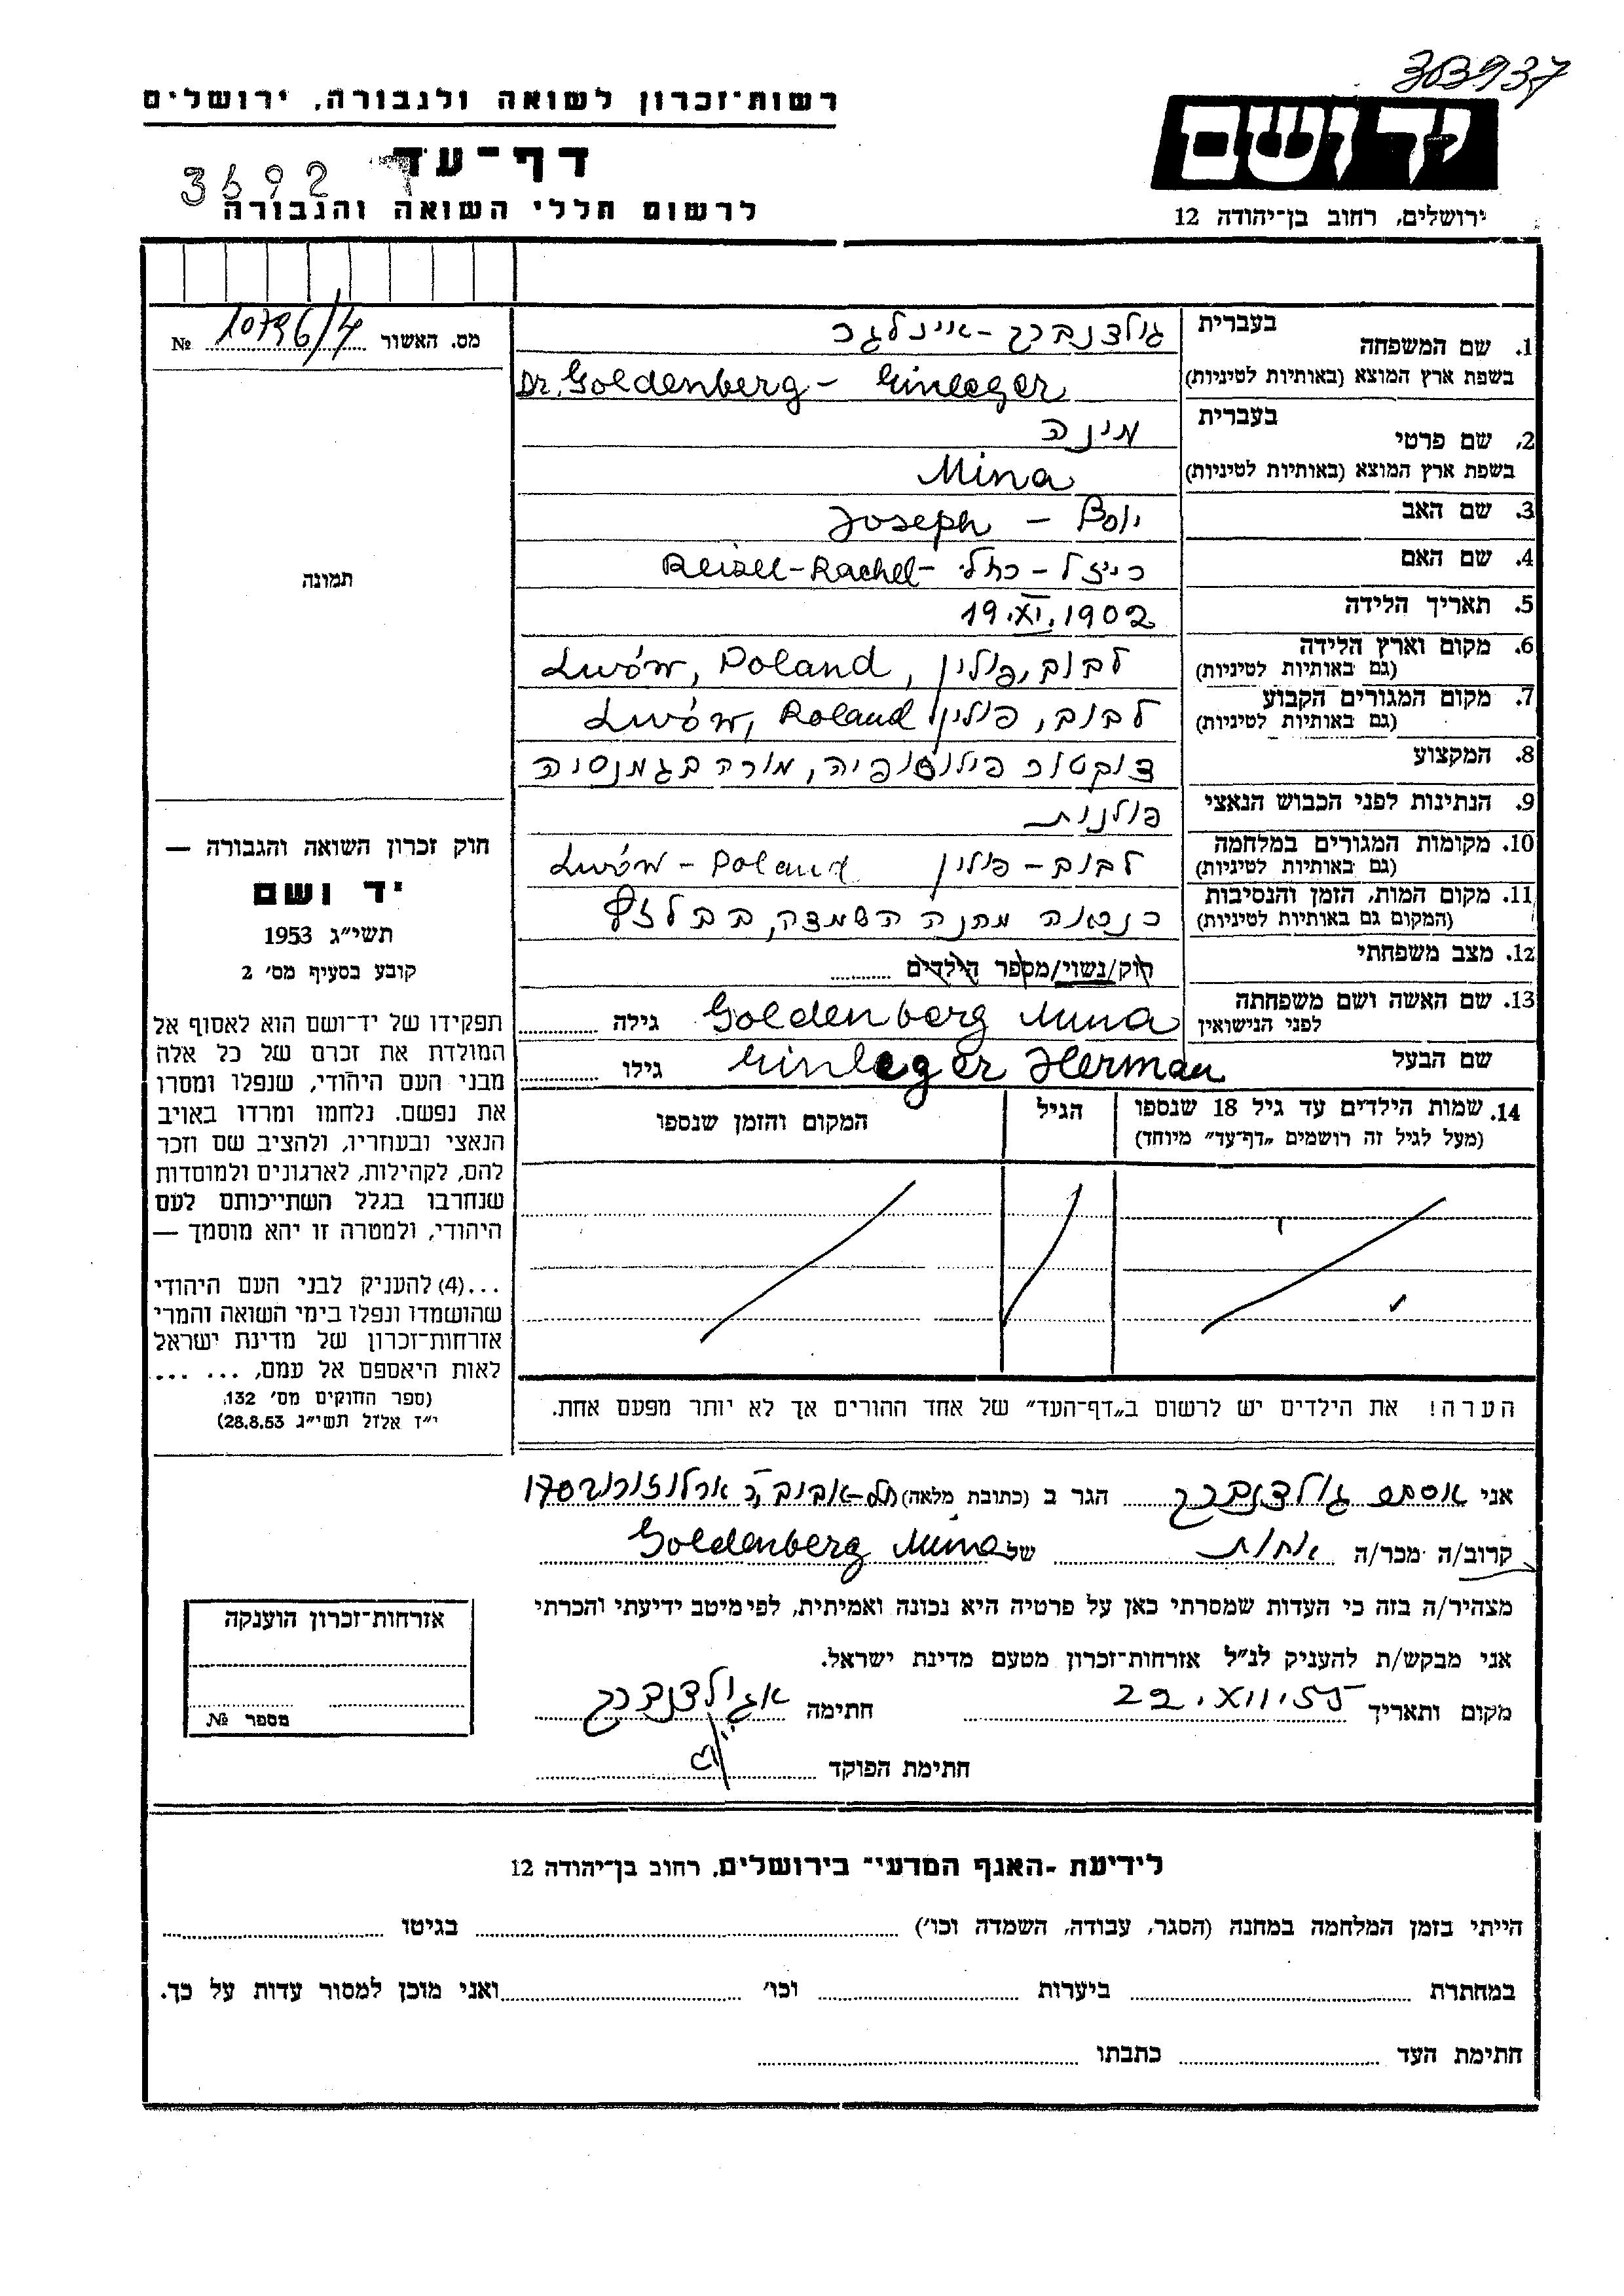 303937
רשות-זכרון לשואה ולגבורה, ירושלים
דף-עד
3692
לרשום חללי השואה והגבורה
יד ושם
ירושלים, רחוב בן-יהודה 12
מס. האשור 10796/4 №
תמונה
1. שם המשפחה
בעברית גולדנברג-איינלגר
בשפת ארץ המוצא (באותיות לטיניות) Dr. Goldenberg - Einleger
2. שם פרטי
בעברית מינה
בשפת ארץ המוצא (באותיות לטיניות) Mina
3. שם האב יוסף - Joseph
4. שם האם רייזל - רחל - Reisel-Rachel
5. תאריך הלידה 19.XI.1902
6. מקום וארץ הלידה לבוב, פולין, Lwów, Poland
(גם באותיות לטיניות)
7. מקום המגורים הקבוע לבוב, פולין Lwów, Poland
(גם באותיות לטיניות)
8. המקצוע דוקטור פילוסופיה, מורה בגמנסיה
9. הנתינות לפני הכבוש הנאצי פולנית
10. מקומות המגורים במלחמה לבוב - פולין Lwów - Poland
(גם באותיות לטיניות)
11. מקום המות, הזמן והנסיבות כנראה מחנה השמדה, בבלזץ
(המקום גם באותיות לטיניות)
12. מצב משפחתי רוק/נשוי/מספר הילדים
13. שם האשה ושם משפחתה Goldenberg Mina גילה
לפני הנישואין
שם הבעל Einleger Herman גילו
14. שמות הילדים עד גיל 18 שנספו הגיל המקום והזמן שנספו
(מעל לגיל זה רושמים "דף-עד" מיוחד)
הערה! את הילדים יש לרשום ב"דף-העד" של אחד ההורים אך לא יותר מפעם אחת.
חוק זכרון השואה והגבורה —
יד ושם
תשי"ג 1953
קובע בסעיף מס' 2
תפקידו של יד-ושם הוא לאסוף אל
המולדת את זכרם של כל אלה
מבני העם היהודי, שנפלו ומסרו
את נפשם, נלחמו ומרדו באויב
הנאצי ובעוזריו, ולהציב שם וזכר
להם, לקהילות, לארגונים ולמוסדות
שנחרבו בגלל השתייכותם לעם
היהודי, ולמטרה זו יהא מוסמך —
...(4) להעניק לבני העם היהודי
שהושמדו ונפלו בימי השואה והמרי
אזרחות-זכרון של מדינת ישראל
לאות היאספם אל עמם, ... ...
(ספר החוקים מס' 132,
י"ז אלול תשי"ג 28.8.53)
אני אסתר גולדנברג הגר ב (כתובת מלאה) תל-אביב, ר' ארלוזורוב 170
קרוב/ה מכר/ה אחות של Goldenberg Mina
מצהיר/ה בזה כי העדות שמסרתי כאן על פרטיה היא נכונה ואמיתית, לפי מיטב ידיעתי והכרתי
אני מבקש/ת להעניק לנ"ל אזרחות-זכרון מטעם מדינת ישראל.
מקום ותאריך 22.XII.55 חתימה א גולדנברג
חתימת הפוקד
אזרחות-זכרון הוענקה
מספר №
לידיעת "האגף המדעי" בירושלים, רחוב בן-יהודה 12
הייתי בזמן המלחמה במחנה (הסגר, עבודה, השמדה וכו') בגיטו
במחתרת ביערות וכו' ואני מוכן למסור עדות על כך.
חתימת העד כתבתו